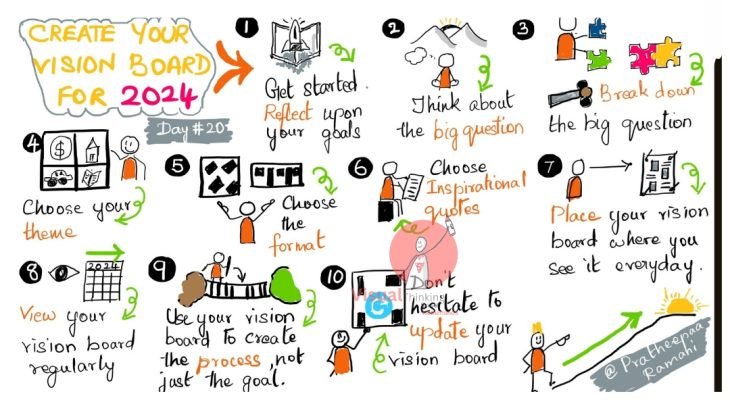 CREATE YOUR
VISION BOARD
FOR 2024
Day #20
1
Get started.
Reflect upon
your goals
2
Think about
the big question
3
Break down
the big question
4
$
Choose your
theme
5
Choose
the
format
6
Choose
Inspirational
quotes
7
Place your vision
board where you
see it everyday.
8
2024
View your
vision board
regularly
9
Use your vision
board to create
the process, not
just the goal.
10
Don't
hesitate to
update your
vision board
Visual Thinking
@ Pratheepaa
Ramahi